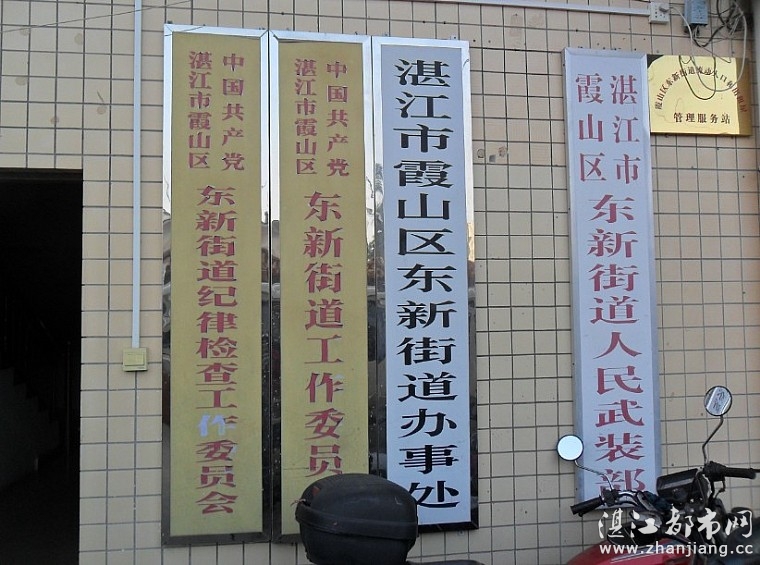 中国共产党
湛江市霞山区
东新街道纪律检查工作委员会
中国共产党
湛江市霞山区
东新街道工作委员
湛江市霞山区东新街道办事处
湛江市
霞山区
东新街道人民武装部
管理服务站
湛江都市网
www.zhanjiang.cc